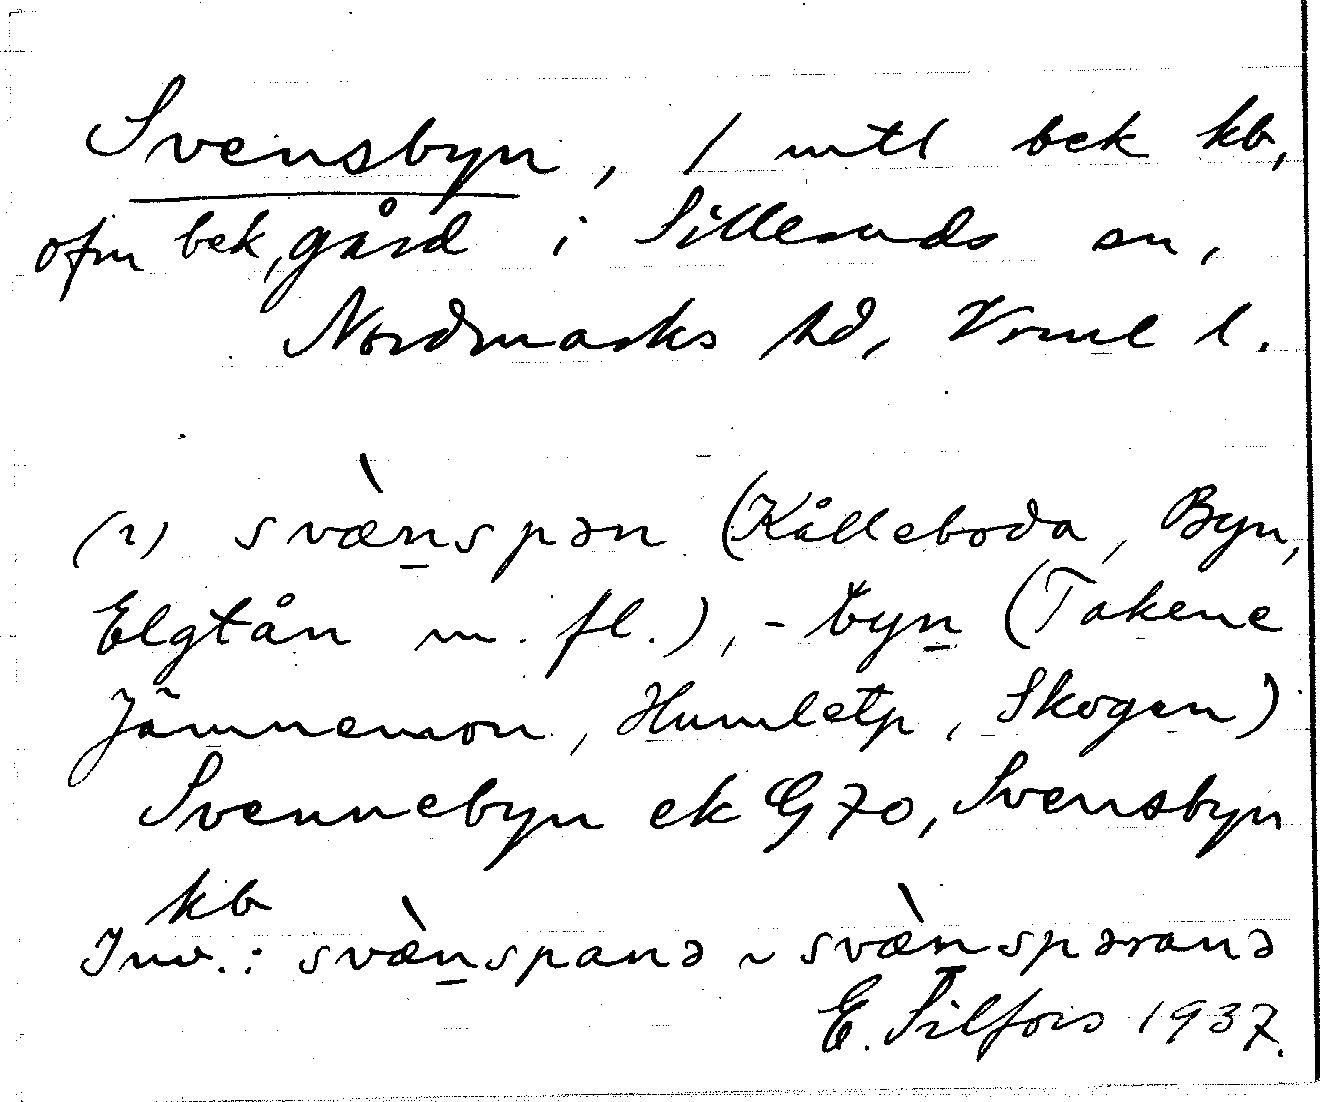 Svensbyn, / mtl bek kb,
ofm bek, gård i Silleruds sn,
Nordmarks hd, Vrml l.
(1) svæ̀n̲spən (Kålleboda, Byn,
Elgtån m. fl.), -byn̲ (Takene
Jämnemon, Humletp, Skogen)
Svennebyn ek G 70, Svensbyn
kb
Inv.: svæ̀n̲spanə ~ svæ̀n̲spəranə
E. Silfors 1937.